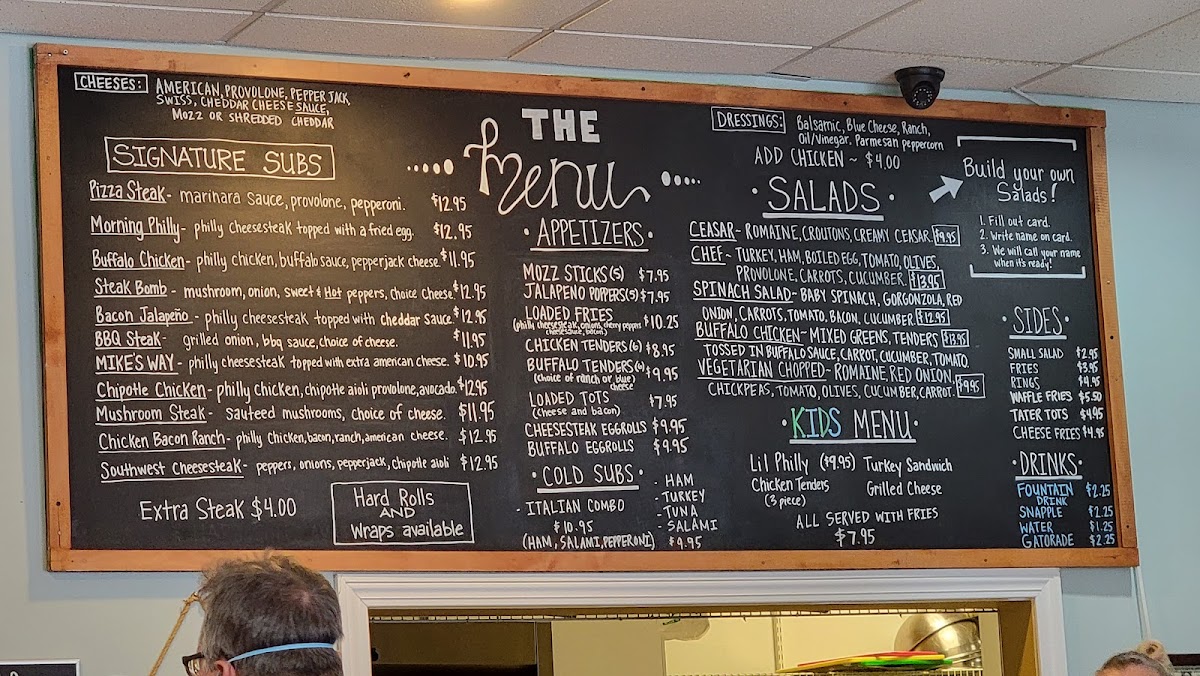 CHEESES: AMERICAN, PROVOLONE, PEPPER JACK,
SWISS, CHEDDAR CHEESE SAUCE,
MOZZ OR SHREDDED CHEDDAR
SIGNATURE SUBS
Pizza Steak- marinara sauce, provolone, pepperoni. $12.95
Morning Philly- philly cheesesteak topped with a fried egg. $12.95
Buffalo Chicken- philly chicken, buffalo sauce, pepperjack cheese. $11.95
Steak Bomb- mushroom, onion, sweet & Hot peppers, choice cheese. $12.95
Bacon Jalapeño- philly cheesesteak topped with cheddar sauce. $12.95
BBQ Steak- grilled onion, bbq sauce, choice of cheese. $11.95
MIKE'S WAY- philly cheesesteak topped with extra american cheese. $10.95
Chipotle Chicken- philly chicken, chipotle aioli provolone, avocado. $12.95
Mushroom Steak- sauteed mushrooms, choice of cheese. $11.95
Chicken Bacon Ranch- philly chicken, bacon, ranch, american cheese. $12.95
Southwest Cheesesteak- peppers, onions, pepperjack, chipotle aioli $12.95
Extra Steak $4.00
Hard Rolls
AND
Wraps available
THE
Menu
• APPETIZERS •
MOZZ STICKS (5) $7.95
JALAPENO POPPERS (5) $7.95
LOADED FRIES $10.25
(philly cheesesteak, onions, cherry peppers
cheesesauce, bacon)
CHICKEN TENDERS (6) $8.95
BUFFALO TENDERS (6) $9.95
(choice of ranch or blue
cheese
LOADED TOTS $7.95
(cheese and bacon)
CHEESESTEAK EGGROLLS $9.95
BUFFALO EGGROLLS $9.95
• COLD SUBS •
- ITALIAN COMBO
$10.95
(HAM, SALAMI, PEPPERONI)
- HAM
- TURKEY
- TUNA
- SALAMI
$9.95
DRESSINGS: Balsamic, Blue Cheese, Ranch,
Oil/Vinegar, Parmesan peppercorn
ADD CHICKEN ~ $4.00
• SALADS •
CEASAR- ROMAINE, CROUTONS, CREAMY CEASAR. $9.95
CHEF- TURKEY, HAM, BOILED EGG, TOMATO, OLIVES,
PROVOLONE, CARROTS, CUCUMBER. $13.95
SPINACH SALAD- BABY SPINACH, GORGONZOLA, RED
ONION, CARROTS, TOMATO, BACON, CUCUMBER. $12.95
BUFFALO CHICKEN- MIXED GREENS, TENDERS $13.95
TOSSED IN BUFFALO SAUCE, CARROT, CUCUMBER, TOMATO.
VEGETARIAN CHOPPED- ROMAINE, RED ONION,
CHICKPEAS, TOMATO, OLIVES, CUCUMBER, CARROT. $9.95
• KIDS MENU •
Lil Philly ($9.95) Turkey Sandwich
Chicken Tenders Grilled Cheese
(3 piece)
ALL SERVED WITH FRIES
$7.95
Build your own
Salads!
1. Fill out card.
2. Write name on card.
3. We will call your name
when it's ready!
• SIDES •
SMALL SALAD $2.95
FRIES $3.95
RINGS $4.95
WAFFLE FRIES $5.50
TATER TOTS $4.95
CHEESE FRIES $4.95
• DRINKS •
FOUNTAIN $2.25
DRINK
SNAPPLE $2.25
WATER $1.25
GATORADE $2.25